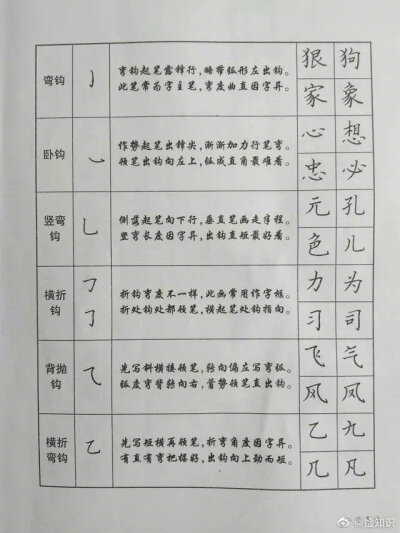 弯钩
弯钩起笔露锋行，略带弧形左出钩。
此笔常为字主笔，弯度曲直因字异。
狠 狗
家 象
卧钩
作势起笔出锋尖，渐渐加力行笔弯。
顿笔出钩向左上，弧成直角最难看。
心 想
忠 必
竖弯
钩
侧落起笔向下行，垂直笔画走字程。
竖弯长度因字异，出钩直短最好看。
元 孔
色 儿
横折
钩
折钩弯度不一样，此画常用作字框。
折处钩处都顿笔，横起笔处钩指向。
力 为
习 司
背抛
钩
先写斜横接顿笔，转向偏左写弯弧。
弧度弯背转向右，蓄势顿笔直出钩。
飞 气
风 凤
横折
弯钩
先写短横再顿笔，折弯角度因字异。
有直有弯把握好，出钩向上劲而短。
乙 九
几 凡
@捡知识